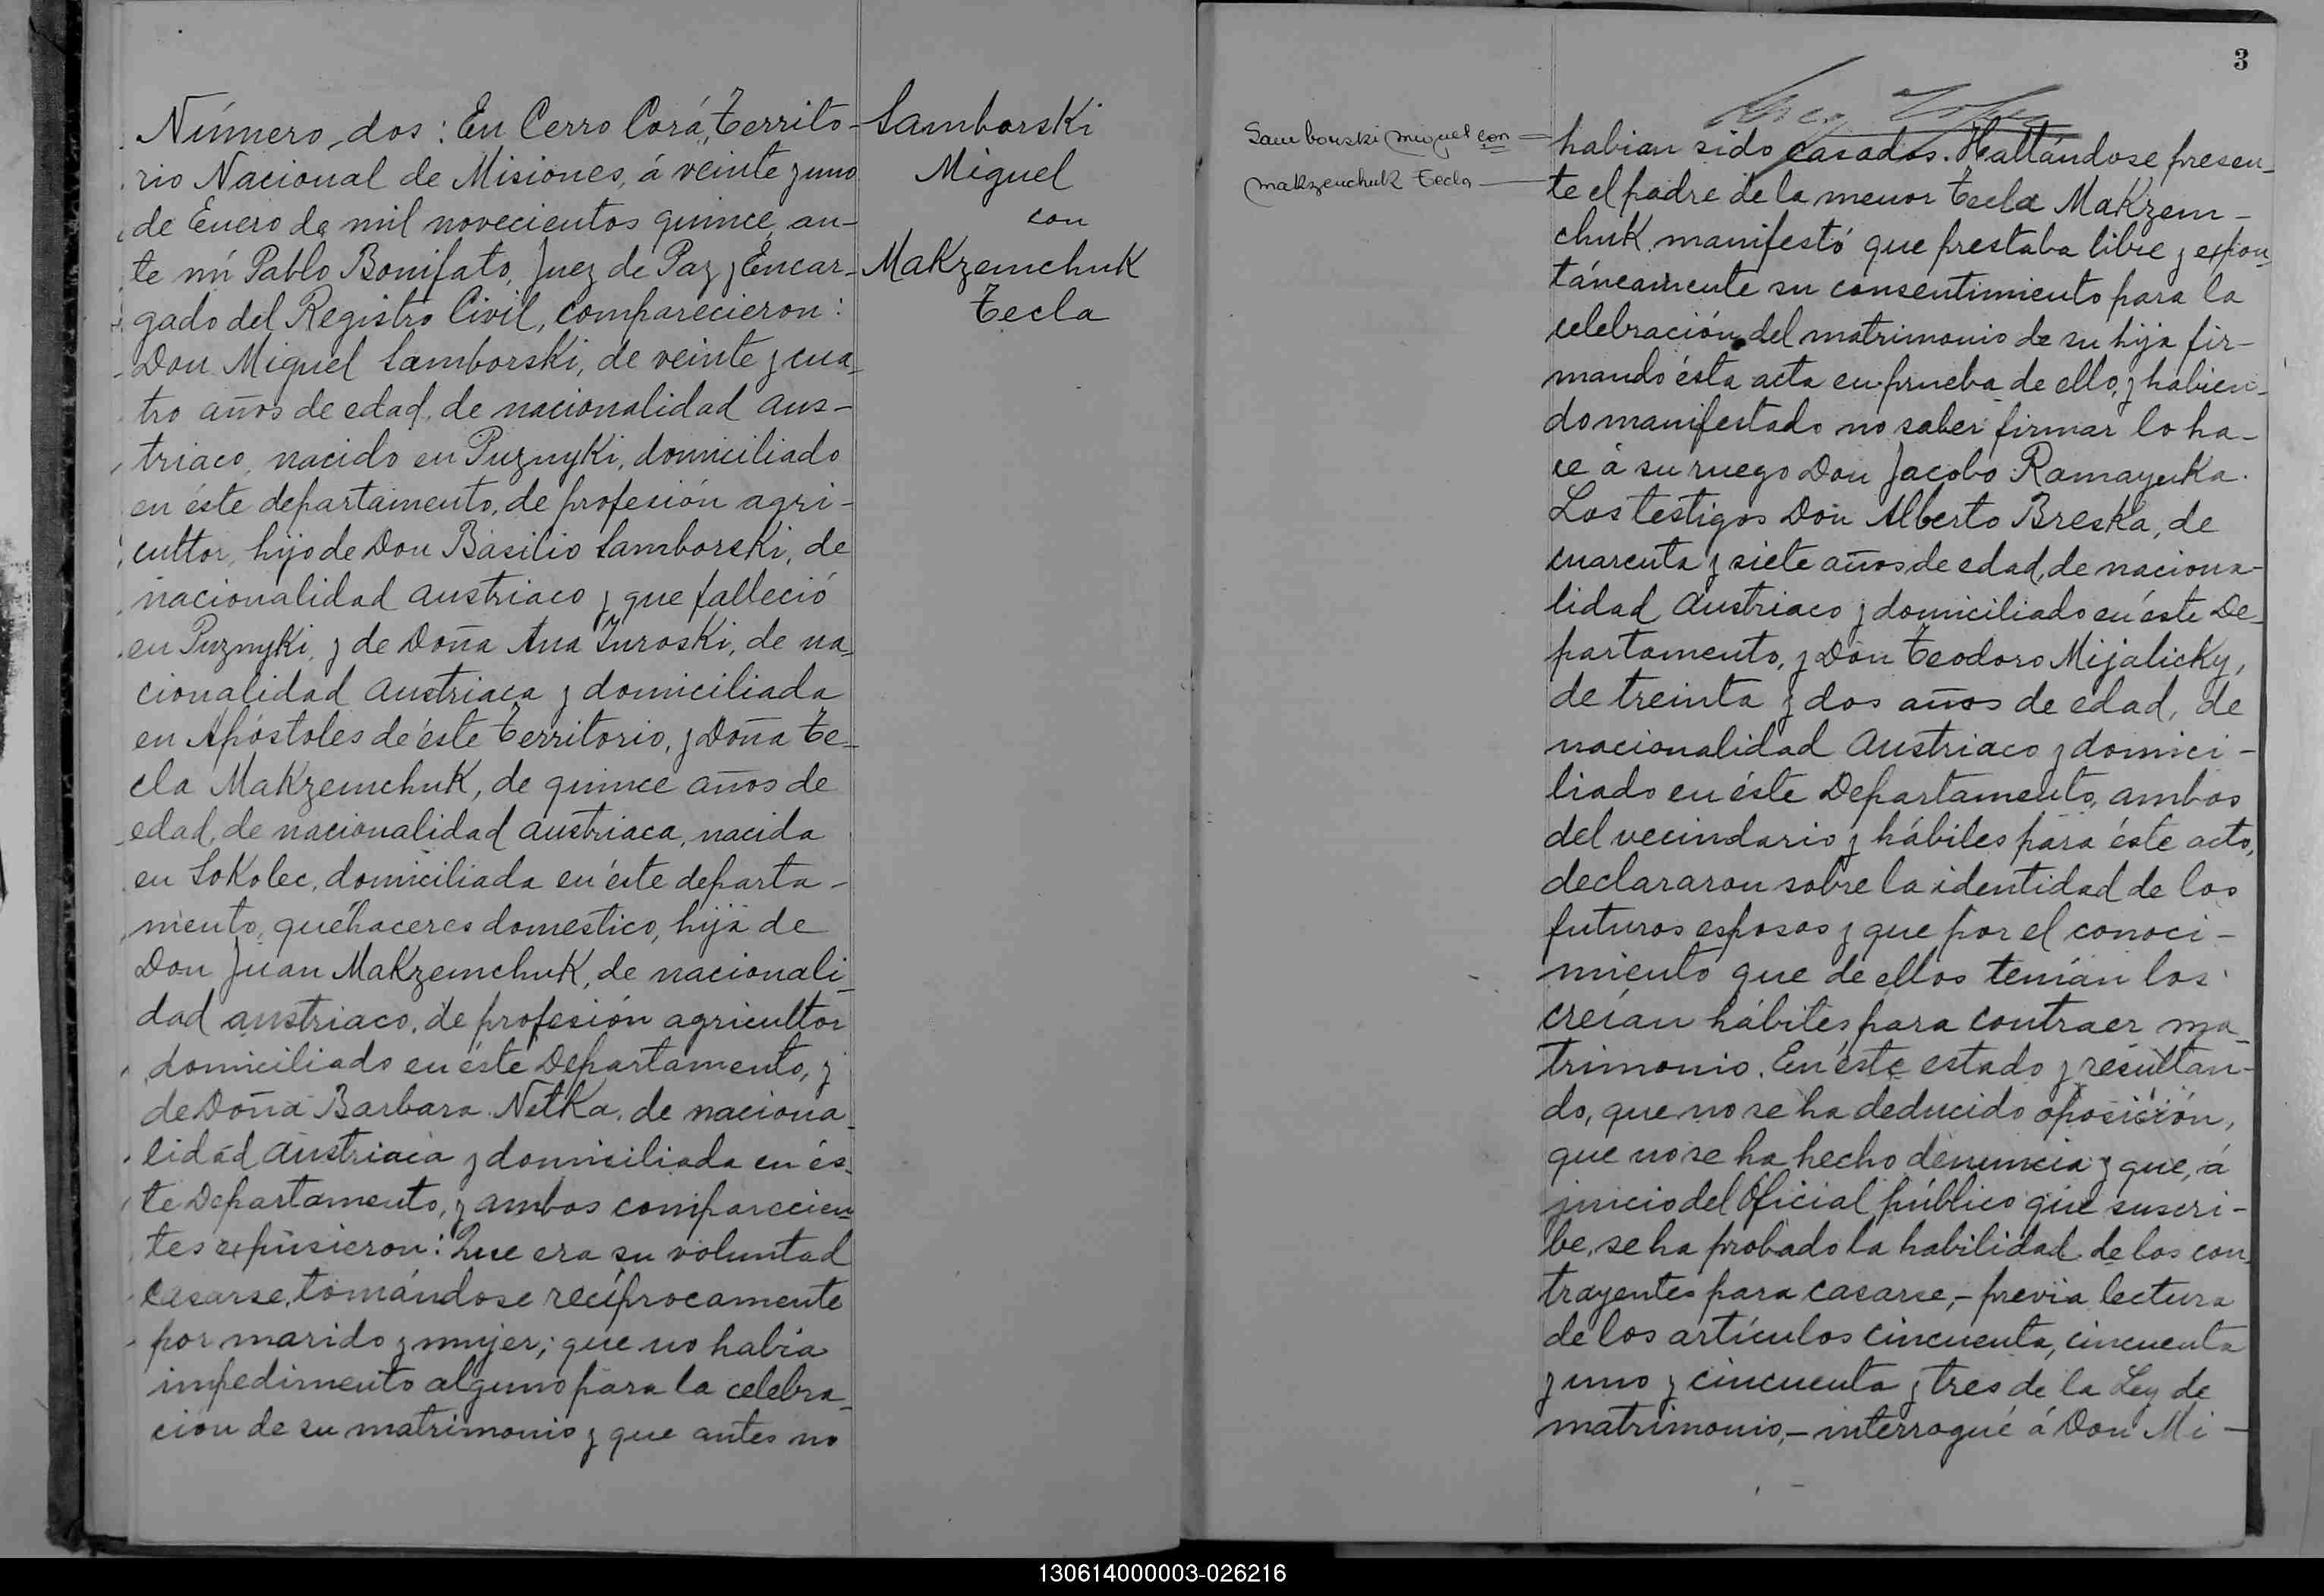 Número dos: En Cerro Corá, Territo-
rio Nacional de Misiones, á veinte y uno
de Enero de mil novecientos quince, an-
te mí Pablo Bonifato, Juez de Paz y Encar-
gado del Registro Civil, comparecieron:
Don Miguel Samborski, de veinte y cua-
tro años de edad, de nacionalidad aus-
triaco, nacido en Puznyki, domiciliado
en éste departamento, de profesión agri-
cultor, hijo de Don Basilio Samborski, de
nacionalidad austriaco y que falleció
en Puznyki, y de Doña Ana Zuroski, de na-
cionalidad austriaca y domiciliada
en Apóstoles de éste Territorio, y Doña Te-
cla Makzemchuk, de quince años de
edad, de nacionalidad austriaca, nacida
en Sokolec, domiciliada en éste departa-
mento, quéhaceres domestico, hija de
Don Juan Makzemchuk, de nacionali-
dad austriaco, de profesión agricultor
domiciliado en éste Departamento, y
de Doña Barbara Netka, de naciona-
lidad austriaca y domiciliada en és-
te Departamento, y ambos comparecien-
tes expusieron: Que era su voluntad
casarse, tomándose recíprocamente
por marido y mujer; que no había
impedimento alguno para la celebra-
ción de su matrimonio y que antes no
Samborski
Miguel
con
Makzemchuk
Tecla
3
Samborski Miguel con
Makzenchuk Tecla
habian sido casados. Hallándose presen-
te el padre de la menor Tecla Makzem-
chuk manifestó que prestaba libre y espon-
táneamente su consentimiento para la
celebración del matrimonio de su hija fir-
mando ésta acta en prueba de ello, y habien-
do manifestado no saber firmar lo ha-
ce á su ruego Don Jacobo Ramayuka.
Los testigos Don Alberto Breska, de
cuarenta y siete años de edad, de naciona-
lidad Austriaco y domiciliado en éste De-
partamento, y Don Teodoro Mijalicky,
de treinta y dos años de edad, de
nacionalidad Austriaco y domici-
liado en éste Departamento, ambos
del vecindario y hábiles para éste acto,
declararon sobre la identidad de los
futuros esposos y que por el conoci-
miento que de ellos tenían los
creían hábiles para contraer ma-
trimonio. En éste estado y resultan-
do, que no se ha deducido oposición,
que no se ha hecho denuncia y que, á
juicio del Oficial público que suscri-
be, se ha probado la habilidad de los con-
trayentes para casarse,- previa lectura
de los artículos cincuenta, cincuenta
y uno y cincuenta y tres de la Ley de
matrimonio,- interrogué á Don Mi-
130614000003-026216